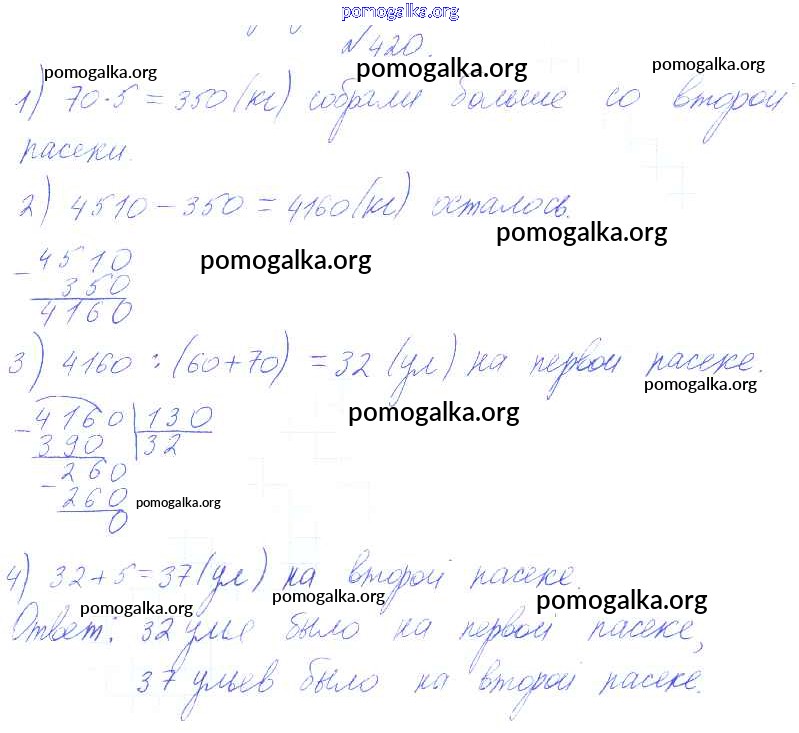 pomogalka.org
№420.
pomogalka.org pomogalka.org pomogalka.org
1) 70·5=350(кг) собрали больше со второй
пасеки.
2) 4510-350=4160(кг) осталось.
pomogalka.org
pomogalka.org
-4510
350
4160
3) 4160:(60+70)=32(ул) на первой пасеке.
pomogalka.org
pomogalka.org
-4160 130
390 32
-260
260
pomogalka.org
0
4) 32+5=37(ул) на второй пасеке.
pomogalka.org pomogalka.org pomogalka.org
Ответ: 32 улье было на первой пасеке,
37 ульев было на второй пасеке.